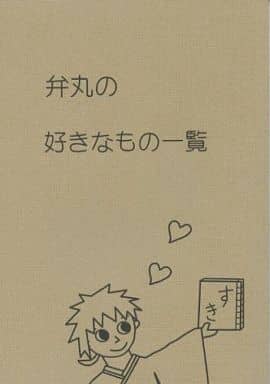 弁丸の
好きなもの一覧
すき